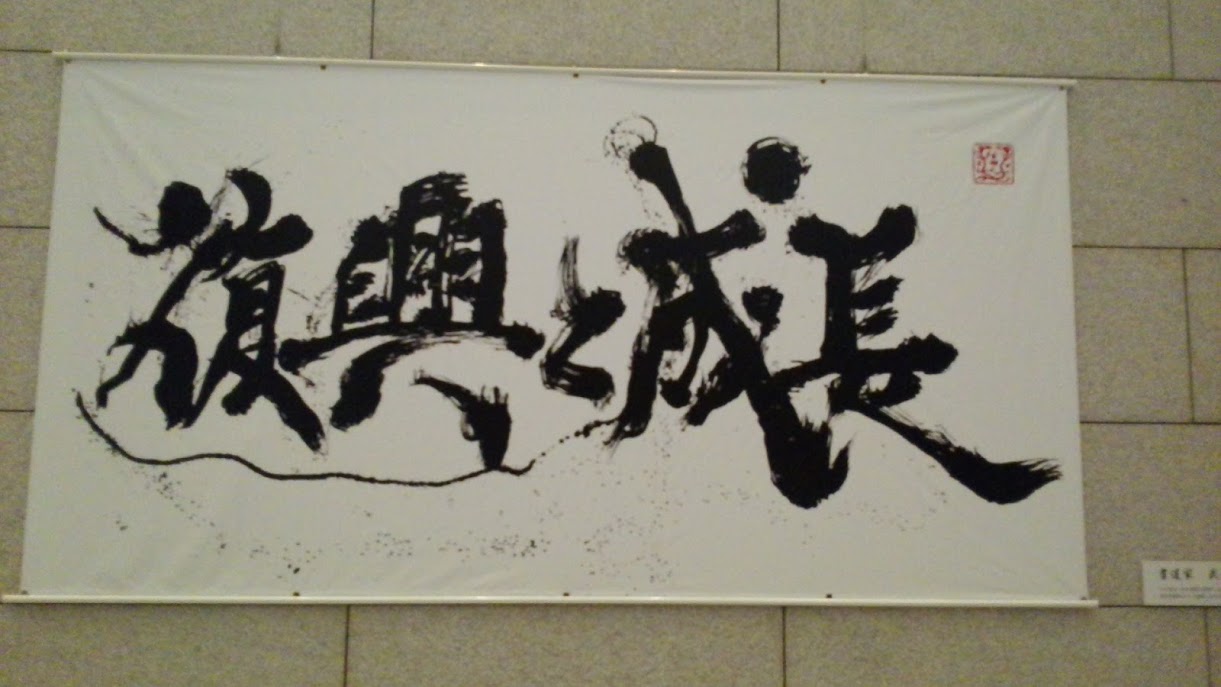 復興と成長
書道家 武